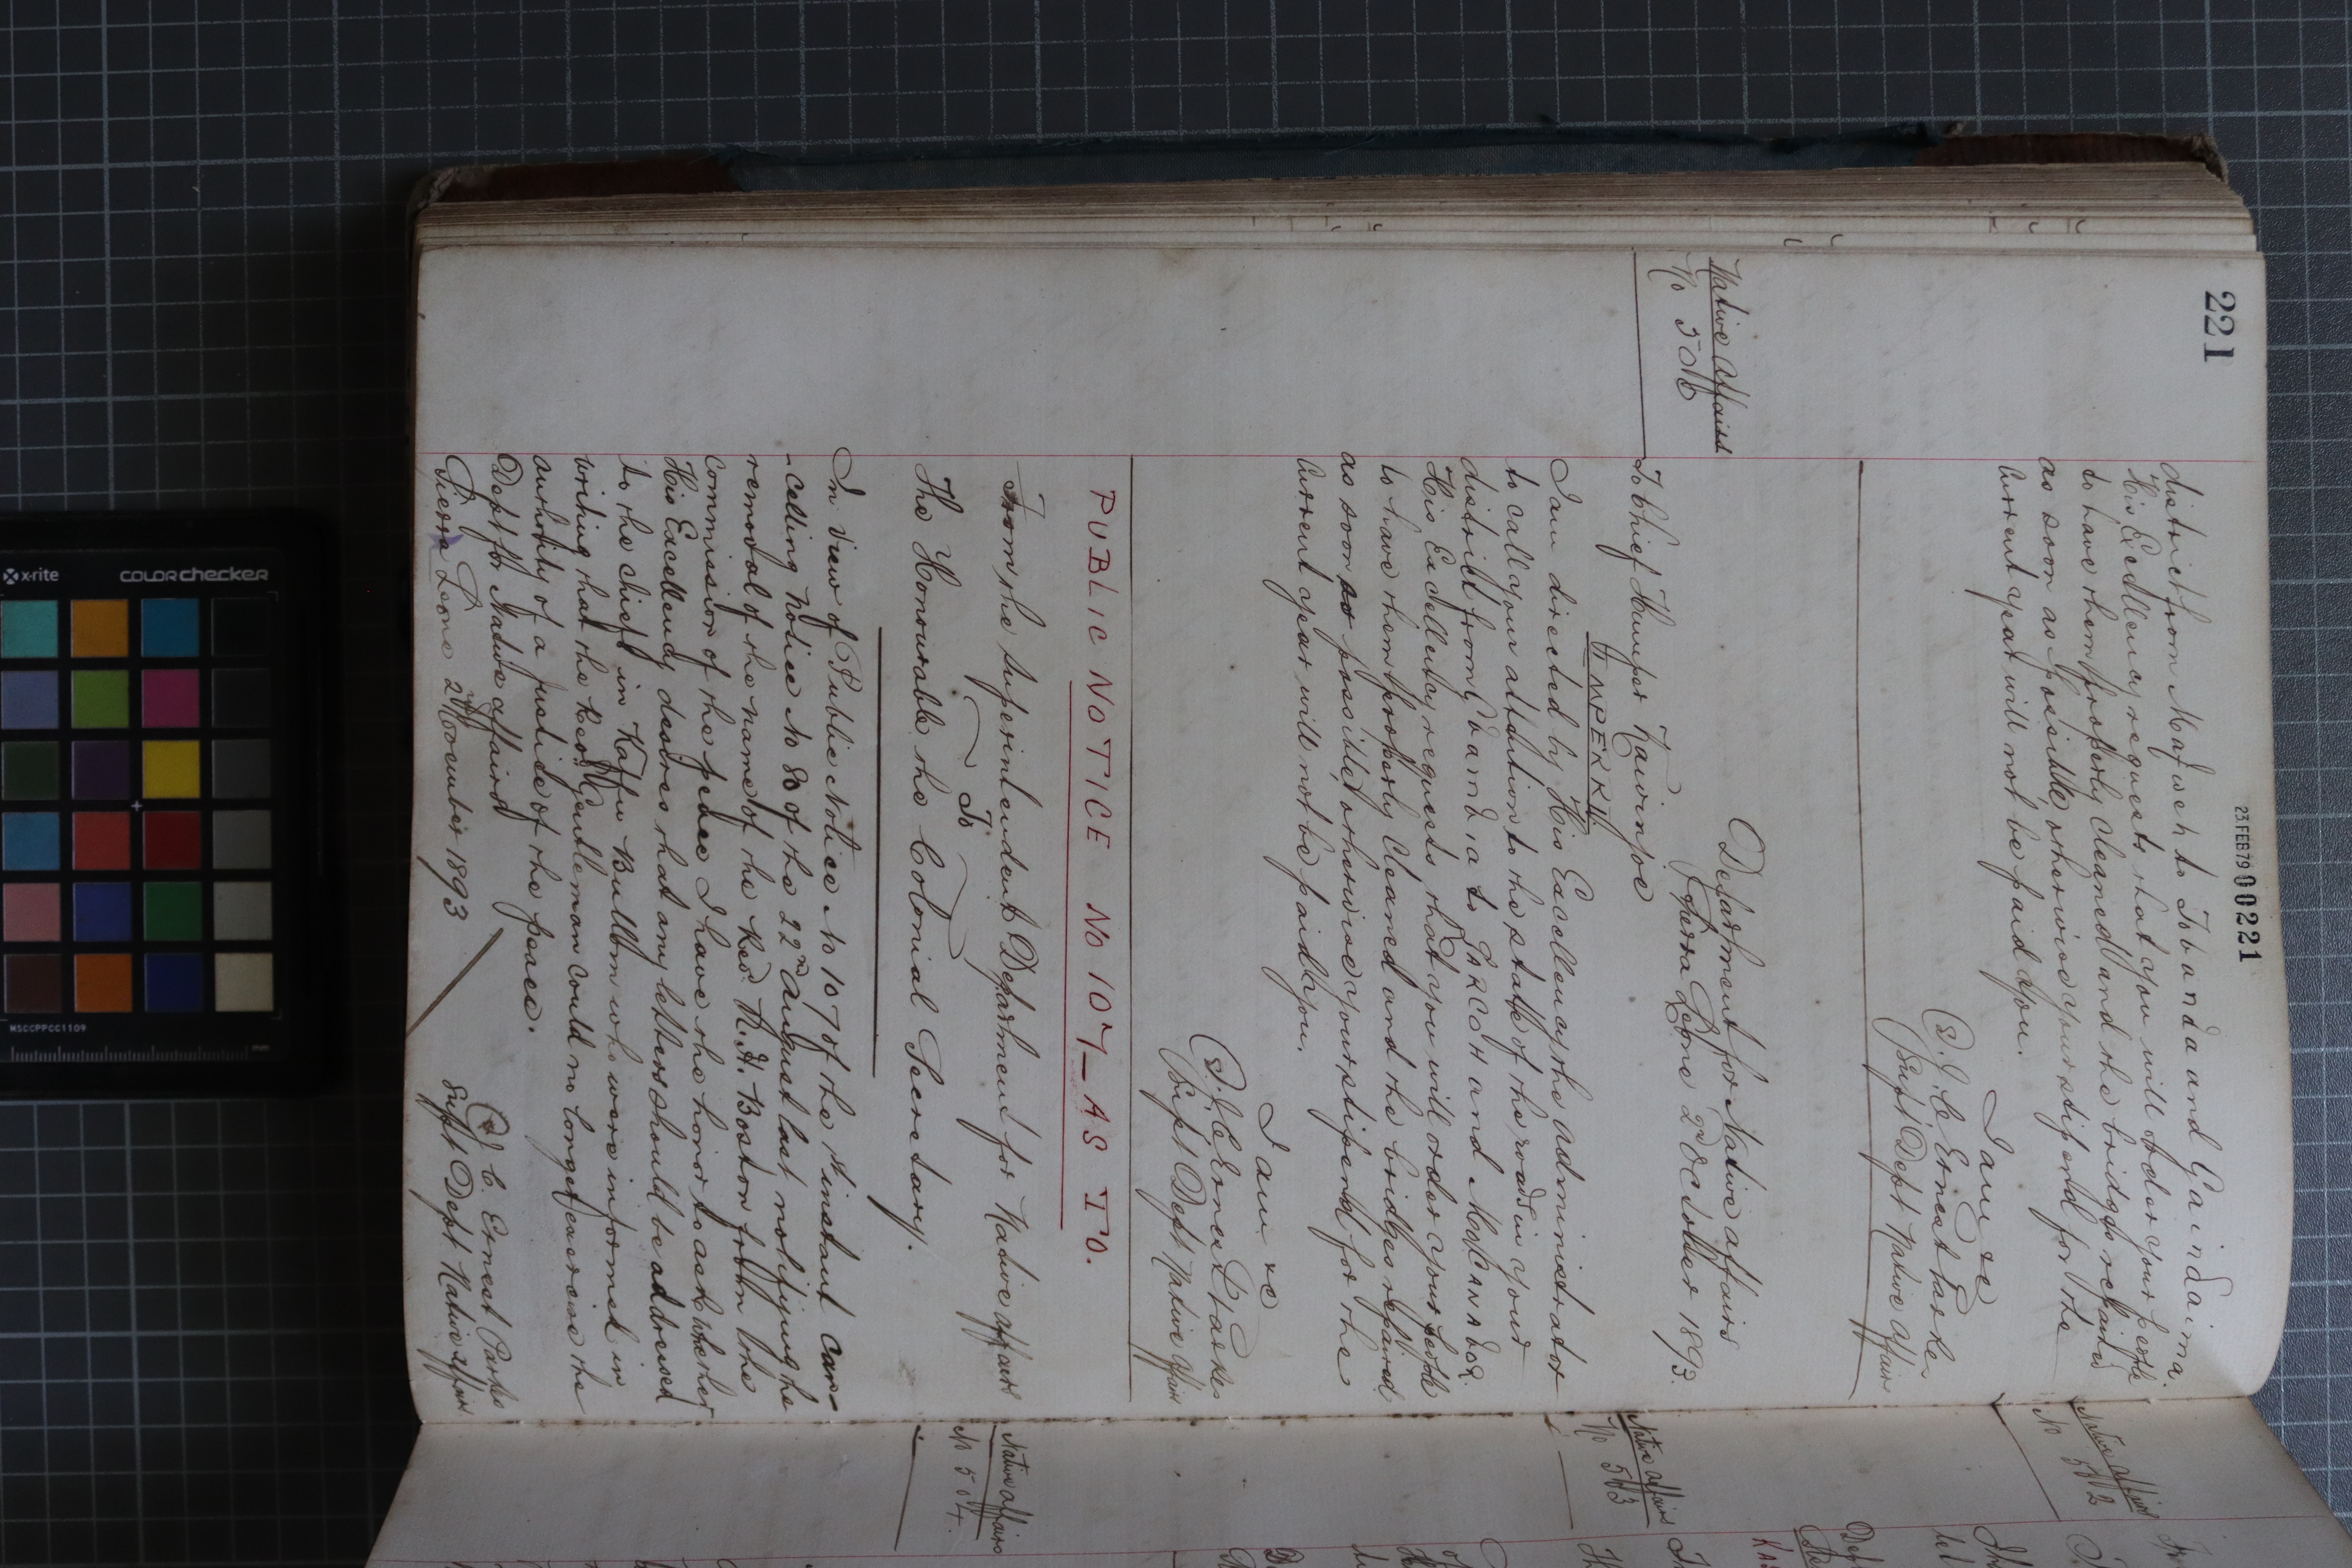 221
23 FEB 79 00221
district from Mafweh to Tobanda and Gaindaima.
His Excellency requests that you will order your people
to have them properly cleaned and the bridges repaired
as soon as possible, otherwise your stipend for the
current year will not be paid you.
I am &c
(Sd) J. C. Ernest Parkes
Supt Dept Native Affairs
Department for Native Affairs
Sierra Leone 2nd October 1893.
Native Affairs
No 501
To Chief Humper
IMPERRI
I am directed by His Excellency the Administrator
to call your attention to the state of the road in your
district from Gbambaia to and
His Excellency requests that you will order your people
to have them properly cleaned and the bridges repaired
as soon as possible, otherwise your stipend for the
current year will not be paid you.
I am &c
(Sd) J. C. Ernest Parkes
Supt Dept Native Affairs
PUBLIC NOTICE No 107 – AS TO.
From the Superintendent Department for Native Affairs
To
The Honourable the Colonial Secretary.
In view of Public Notice No 107 of the instant can-
-celling notice No 80 of the 22nd August last, notifying the
removal of the name of the Revd. R. H. Boston from the
commission of the peace I have the honor to ask whether
His Excellency desires that any letters should be addressed
to the chiefs in Kaffu Bullom who were informed in
writing that the Revd. Gentleman could no longer exercise the
authority of a justice of the peace.
Dept for Native affairs
Sierra Leone November 1893
(Sd) J. C. Ernest Parkes
Supt Dept Native Affairs
Native Affairs
No 502
Native Affairs
No 503
Native Affairs
No 504.
x-rite
colorchecker
MSCCPPCC1109
mm